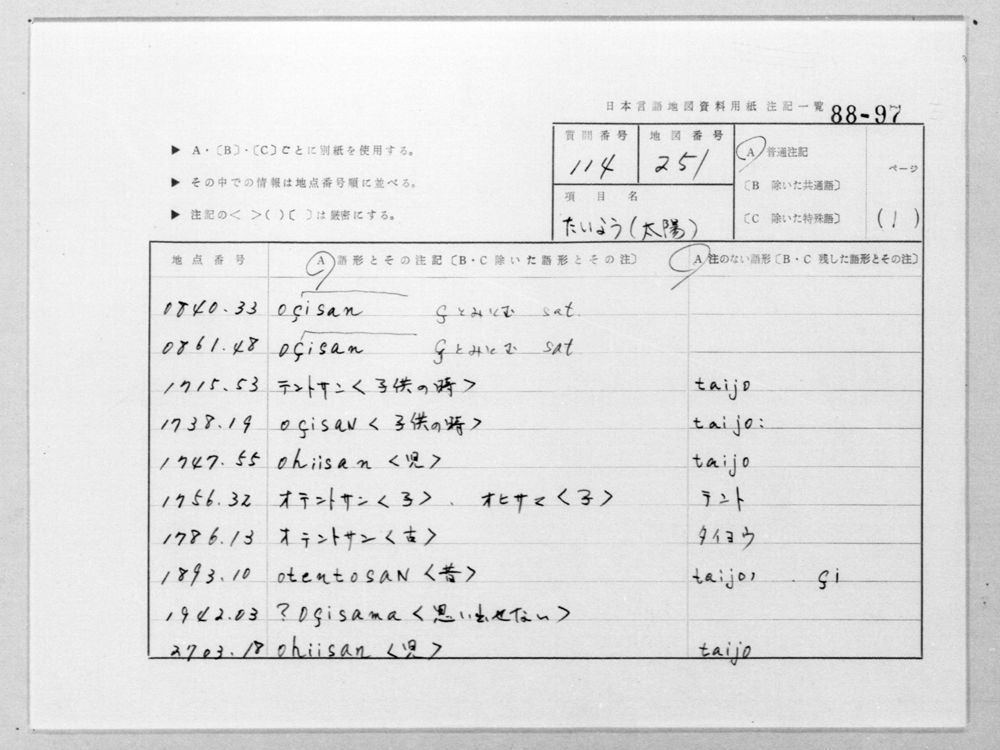 日本言語地図資料用紙 注記一覧 88-97
▶ A・〔B〕・〔C〕ごとに別紙を使用する。
▶ その中での情報は地点番号順に並べる。
▶ 注記の< >( )〔 〕は厳密にする。
質問番号 地図番号
114 251
項目名
たいよう(太陽)
A 普通注記
〔B 除いた共通語〕
〔C 除いた特殊語〕
ページ
(1)
地点番号 A 語形とその注記〔B・C除いた語形とその注〕 A 注のない語形〔B・C残した語形とその注〕
0840.33 oçisan çとみとむ sat.
0861.48 oçisan çとみとむ sat
1715.53 テントサン<子供の時> taijo
1738.19 oçisaN<子供の時> taijo:
1747.55 ohiisan<児> taijo
1756.32 オテントサン<子>. オヒサマ<子> テント
1786.13 オテントサン<古> タイヨウ
1893.10 otentosaN<昔> taijo, çi
1942.03 ?oçisama<思い出せない>
2703.18 ohiisan<児> taijo